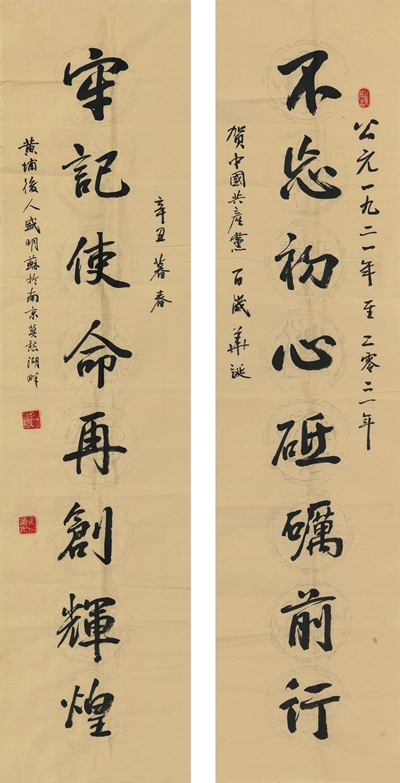 公元一九二一年至二零二一年
不忘初心砥礪前行
賀中國共產黨百歲華誕
辛丑暮春
牢記使命再創輝煌
黃埔後人盛明蘇於南京莫愁湖畔